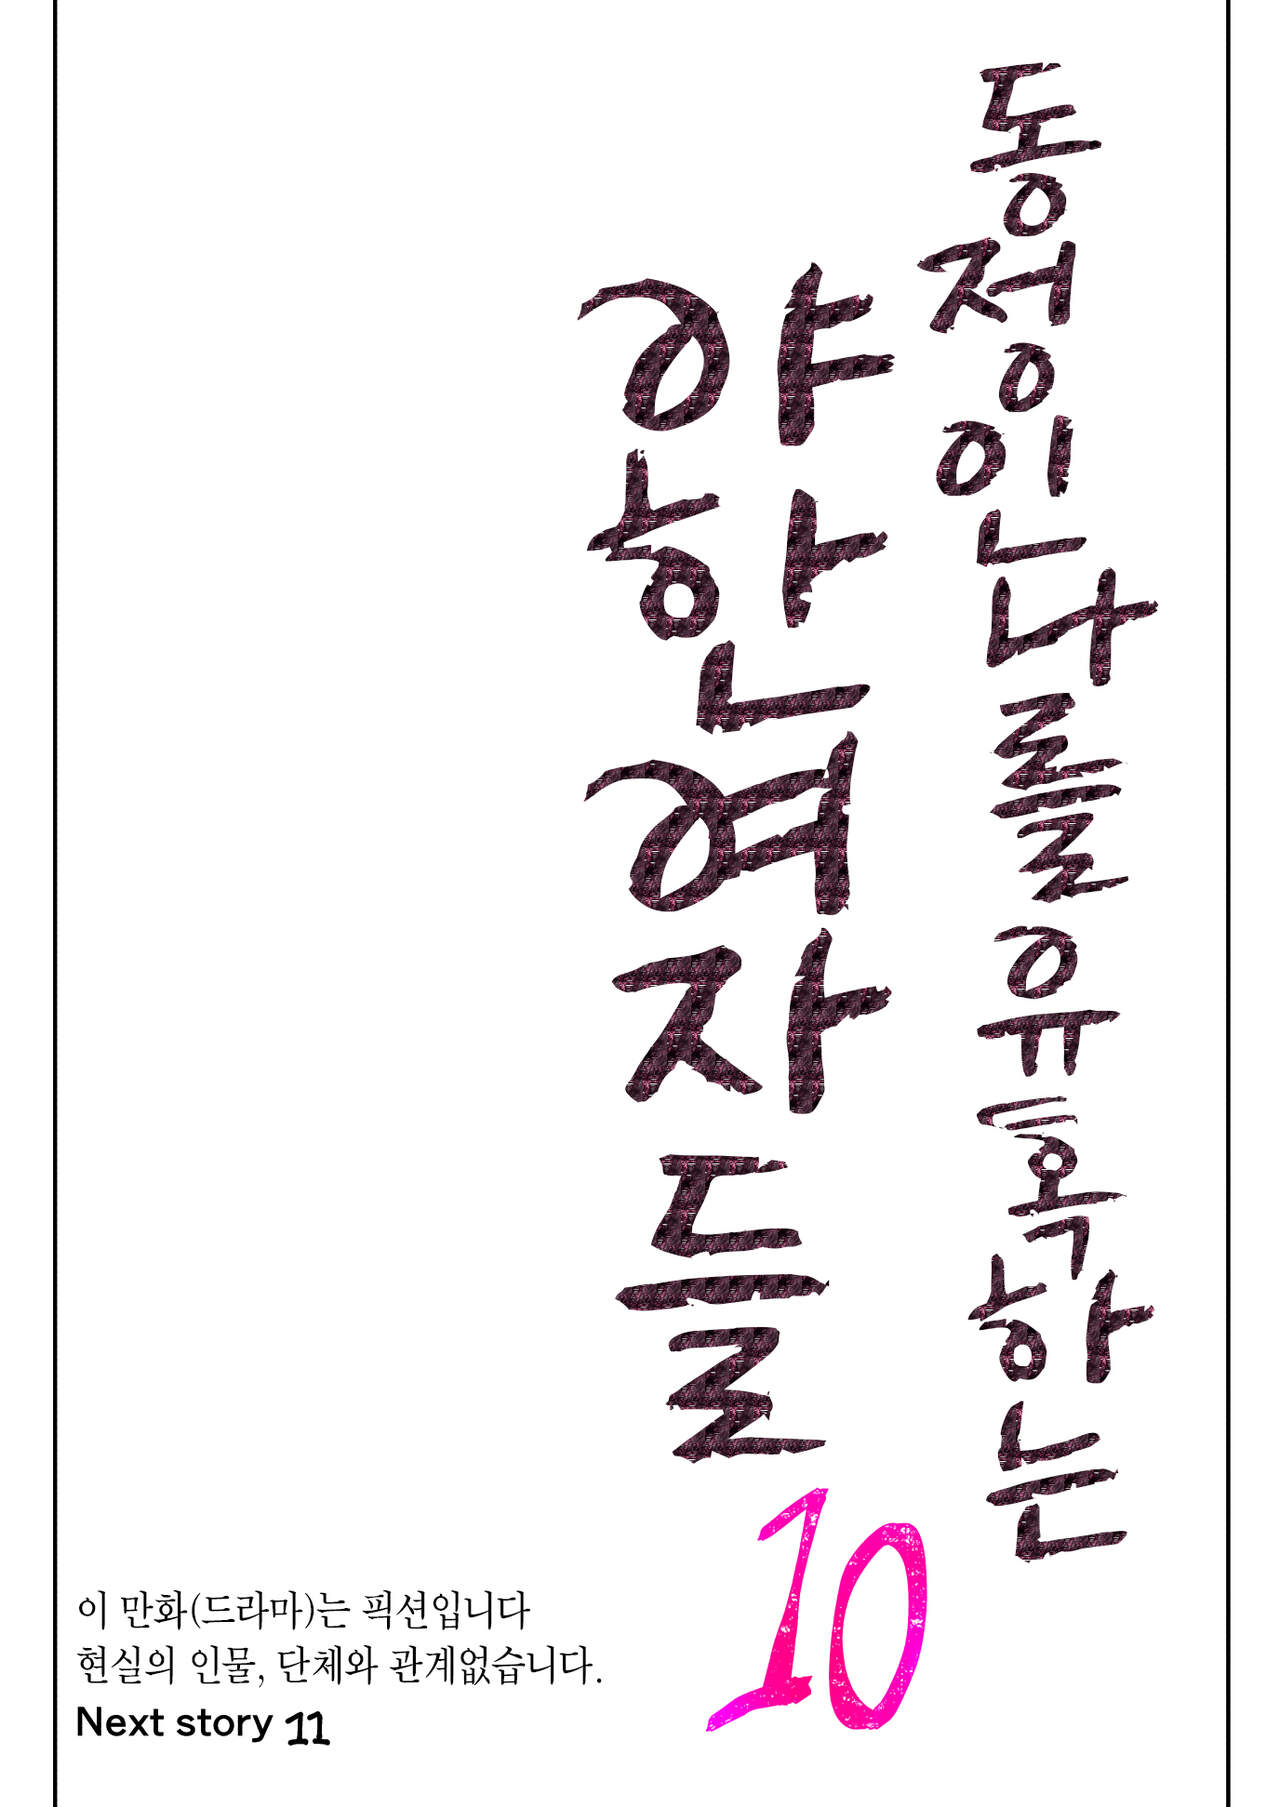 동정인나를유혹하는
야한여자들
10
이 만화(드라마)는 픽션입니다
현실의 인물, 단체와 관계없습니다.
Next story 11